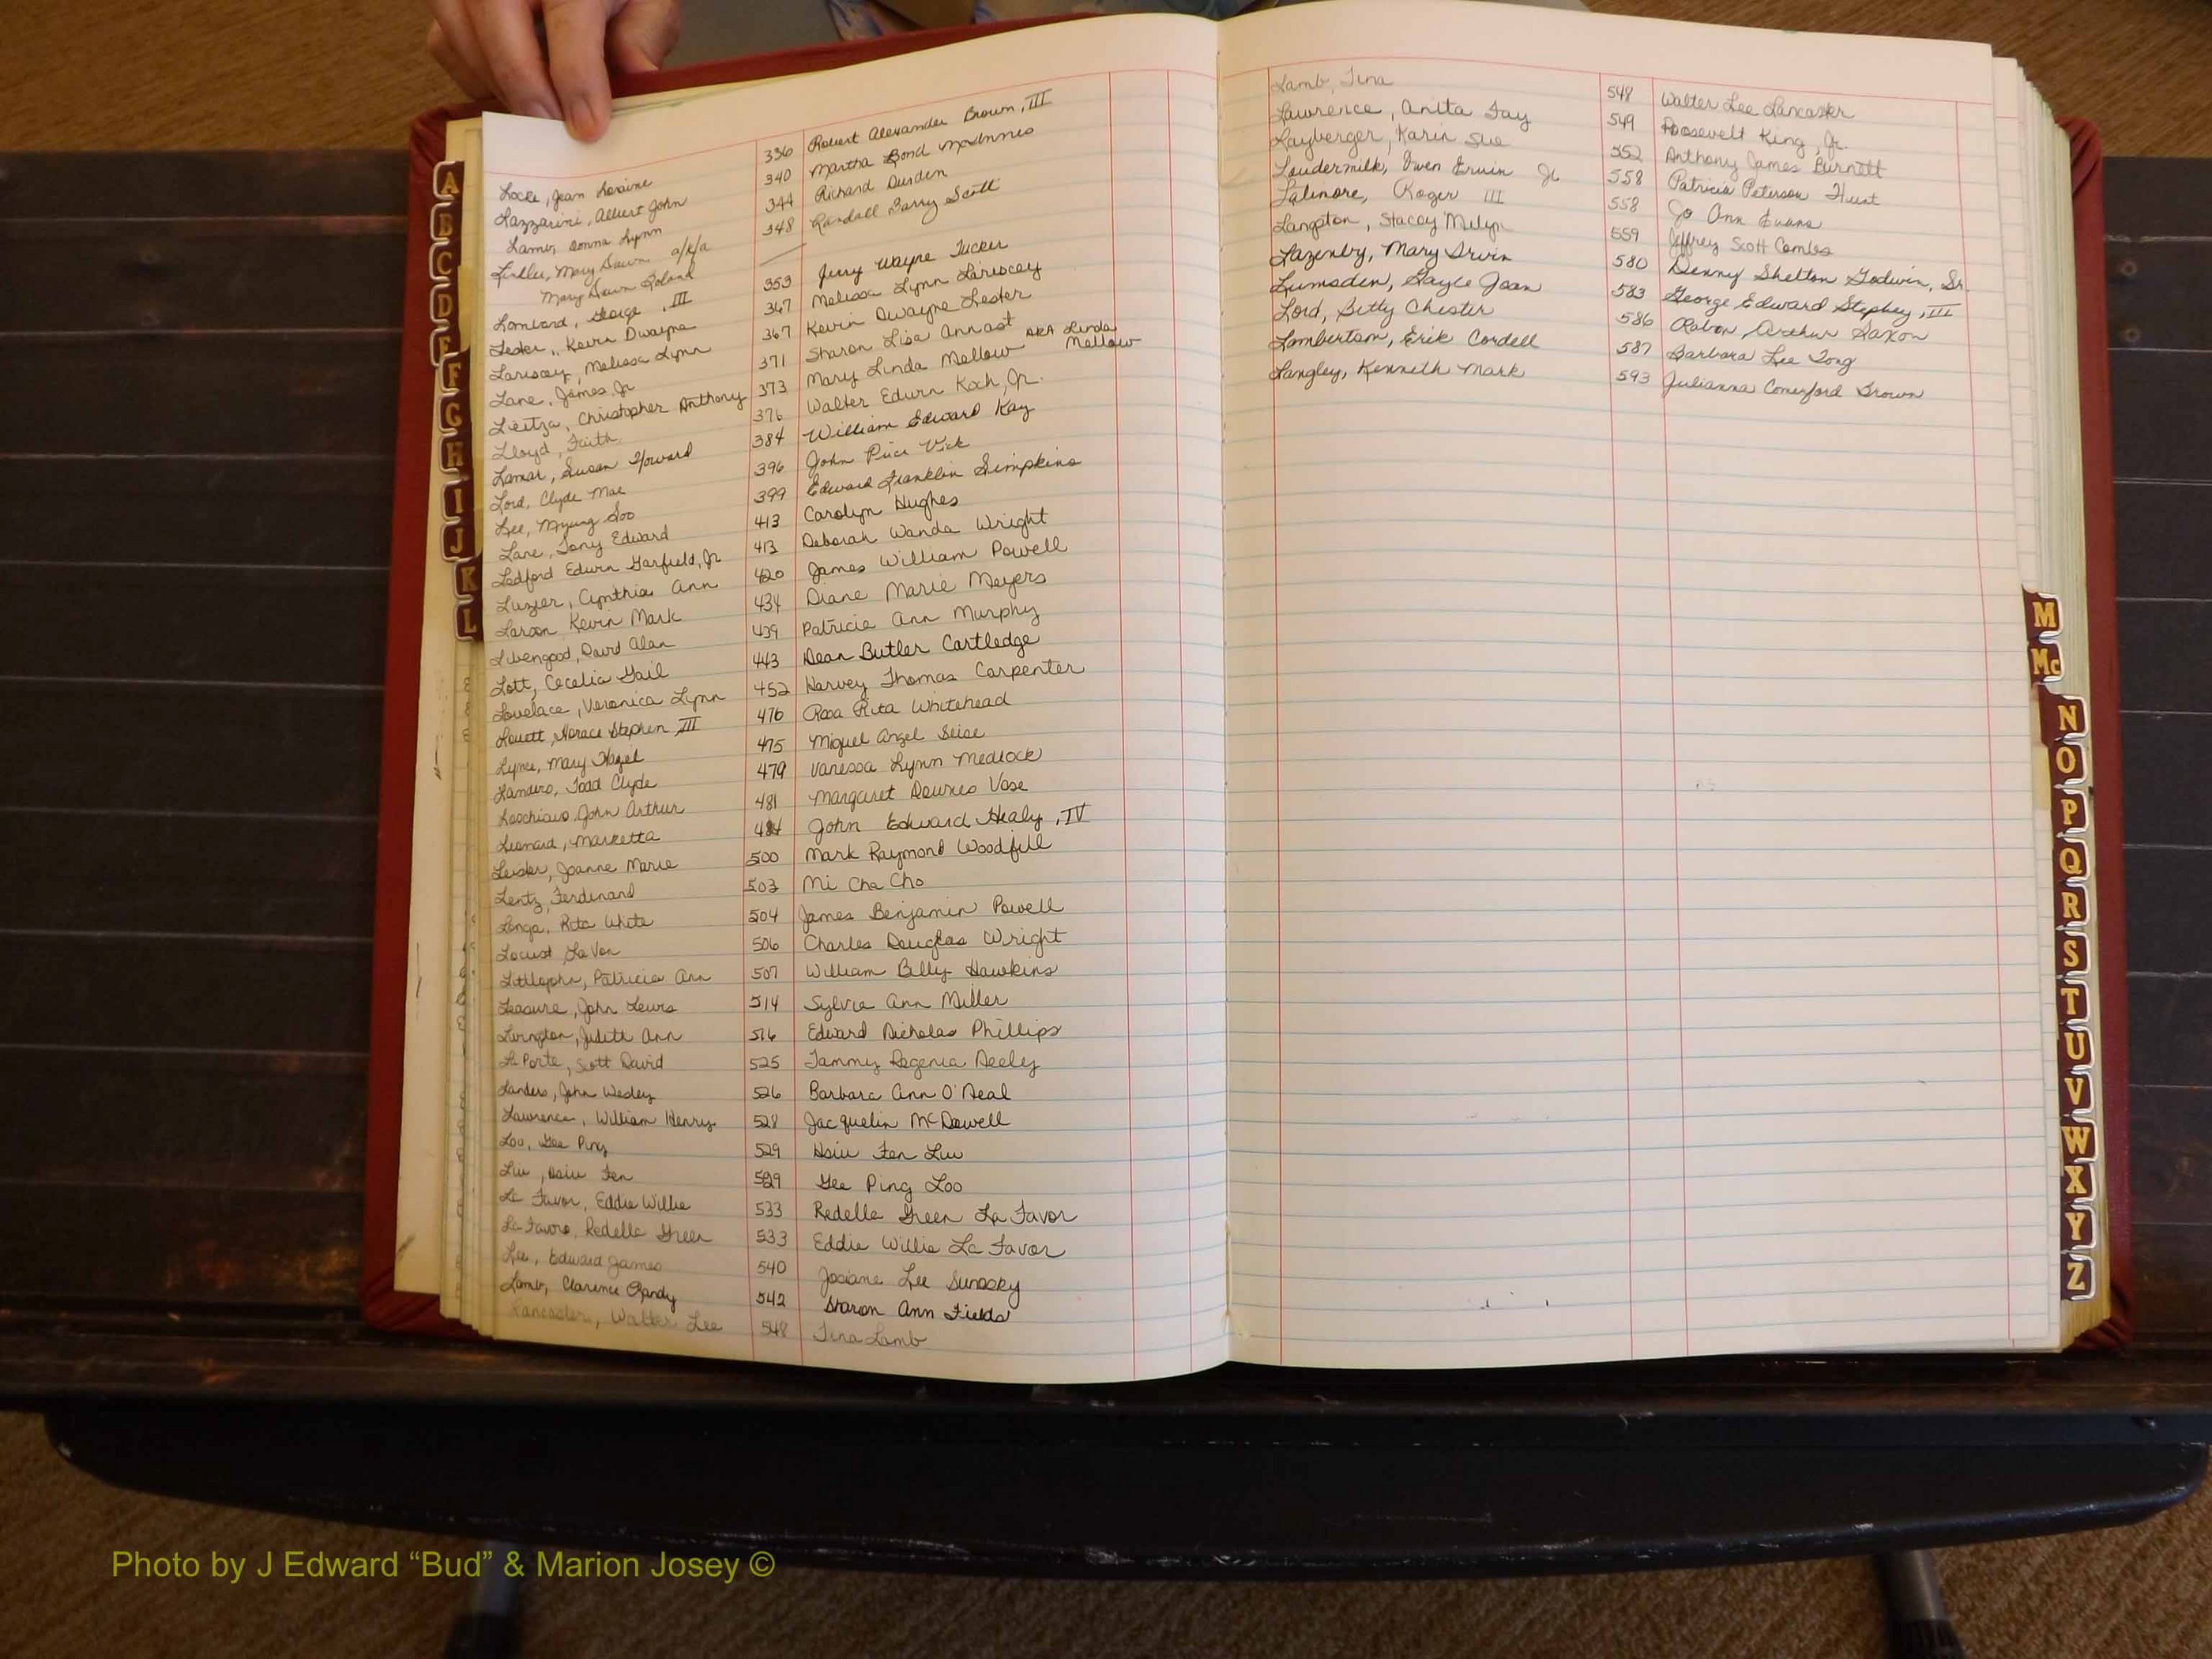 Locke, Jean Loraine 336 Robert Alexander Brown, III
Lazzarini, Albert John 340 Martha Bond McInnes
Lamb, Donna Lynn 344 Richard Durden
Mary Dawn a/k/a 348 Randall Barry Scott
Mary Dawn Roland
Lombard, George, III 353 Jerry Wayne Tucker
Lester, Kevin Dwayne 367 Melissa Lynn Lariscey
Lariscey, Melissa Lynn 367 Kevin Dwayne Lester
Lane, James Jr 371 Sharon Lisa Annast
Christopher Anthony 373 Mary Linda Mellow AKA Linda Mellow
Lloyd, Faith 376 Walter Edwin Koch, Jr.
Lamar, Susan Howard 384 William Edward Kay
Lord, Clyde Mae 396 John Price Vick
Lee, Myung Soo 399 Edward Franklin Simpkins
Lane, Tony Edward 413 Carolyn Hughes
Ledford Edwin Garfield, Jr 413 Deborah Wanda Wright
Luzier, Cynthia Ann 420 James William Powell
Larson Kevin Mark 434 Diane Marie Meyers
Livengood, David Alan 439 Patricia Ann Murphy
Lott, Cecelia Gail 443 Dean Butler Cartledge
Lovelace, Veronica Lynn 452 Harvey Thomas Carpenter
Lovett, Horace Stephen III 470 Rosa Rita Whitehead
Mary Hazel 475 Miguel Angel Seise
Landers, Todd Clyde 479 Vanessa Lynn Medlock
John Arthur 481 Margaret Downes Vose
Leonard, Marketta 484 John Edward Healy, IV
Leisker, Joanne Marie 500 Mark Raymond Woodfill
Lentz, Ferdinand 503 Mi Cha Cho
Longo, Rita White 504 James Benjamin Powell
Locust LaVon 506 Charles Douglas Wright
Littlejohn, Patricia Ann 507 William Billy Hawkins
Leasure, John Lewis 514 Sylvia Ann Miller
Livington, Judith Ann 516 Edward Nicholas Phillips
La Porte, Scott David 525 Tammy Regenia Neely
Landers, John Wesley 526 Barbara Ann O'Neal
Lawrence, William Henry 528 Jacquelin McDowell
Loo, Gee Ping 529 Hsiu Fen Liu
Liu, Hsiu Fen 529 Gee Ping Loo
La Favor, Eddie Willie 533 Redelle Green La Favor
La Favor, Redelle Green 533 Eddie Willie La Favor
Lee, Edward James 540 Josiane Lee Sunosky
Lamb, Clarence Randy 542 Sharon Ann Fields
Lancaster, Walter Lee 548 Tina Lamb
Lamb, Tina 548 Walter Lee Lancaster
Lawrence, Anita Fay 549 Roosevelt King, Jr.
Layberger, Karin Sue 552 Anthony James Burnett
Loudermilk, Owen Ervin Jr 558 Patricia Peterson Hust
Latimore, Roger III 558 Jo Ann Evans
Langston, Stacey Melyn 559 Jeffrey Scott Combs
Lazenby, Mary Irvin 580 Denny Shelton Godwin, Sr.
Lumsden, Gayle Joan 583 George Edward Stephey, III
Lord, Betty Chester 586 Rabon, Arthur Saxon
Lambertson, Erik Cordell 587 Barbara Lee Tong
Langley, Kenneth Mark 593 Julianna Comerford Brown
A
B
C
D
E
F
G
H
I
J
K
L
M
Mc
N
O
P
Q
R
S
T
U
V
W
X
Y
Z
Photo by J Edward “Bud” & Marion Josey ©